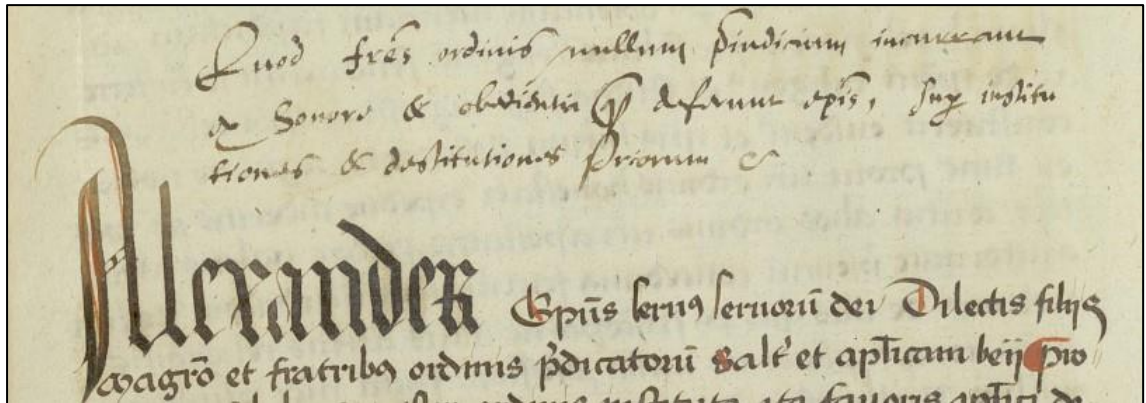 Quod fr̄es ordinis nullum p̄iudicium incurrant
ex honore & obedientia q̄ deferunt ep̄is, sup institu
tiones & destitutiones Priorum &c
Alexander Ep̄us seruꝰ seruorū dei Dilectis filijs
Magr̄o et fratribꝫ ordinis p̄dicatorū Salt̓ et apl̄icam beij Pro